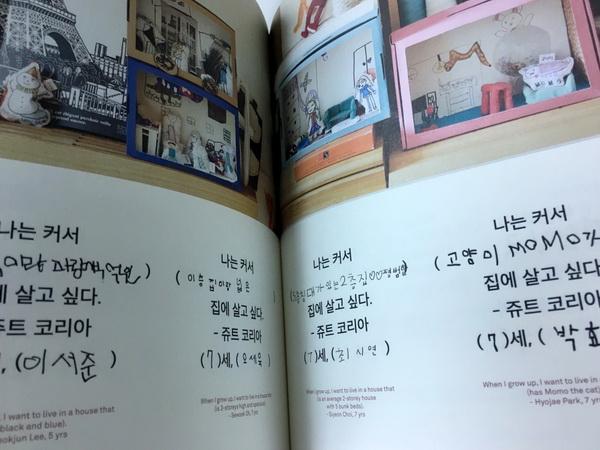 나는 커서
집에 살고 싶다.
쥬트 코리아
(이서준)
I want to live in a house that
black and blue).
Seokjun Lee, 5 yrs
나는 커서
(이층 집이랑 넓은 )
집에 살고 싶다.
- 쥬트 코리아
(7)세, (오세욱 )
When I grow up, I want to live in a house that
나는 커서
2층집♡♡평범한)
집에 살고 싶다.
- 쥬트 코리아
(7)세, (최시연 )
When I grow up, I want to live in a house that
(is an average 2-storey house
with 5 bunk beds).
- Siyeon Choi, 7 yrs
나는 커서
(고양이 MOMO가
집에 살고 싶다
- 쥬트 코리아
(7)세, (박효
When I grow up, I want to live in
(has Momo the cat)
- Hyojae Park, 7 yrs